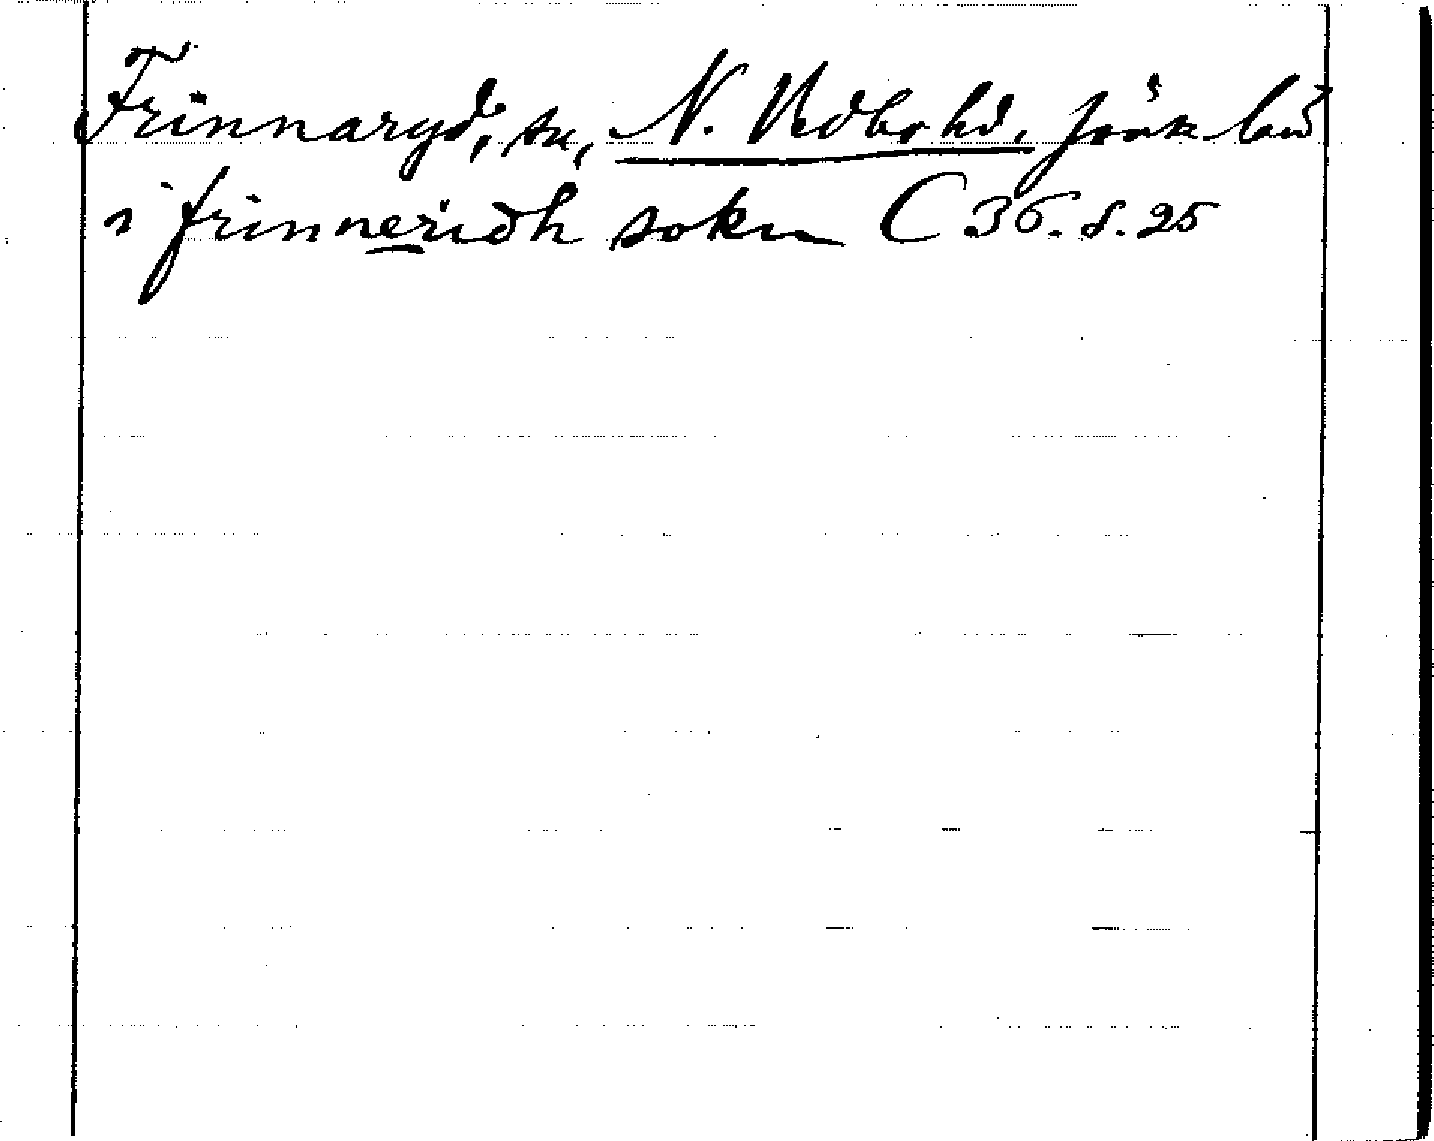 Frinnaryd, sn, N. Vedbo hd. Jönk län
i frinneridh sokn C 36. s. 25